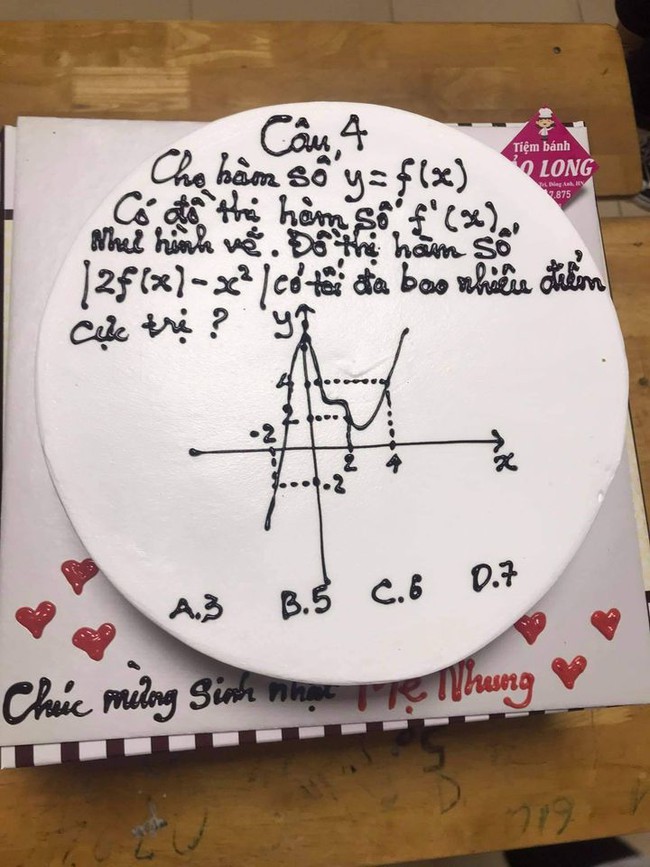 Câu 4
Cho hàm số y = f(x)
Có đồ thị hàm số f'(x)
Như hình vẽ. Đồ thị hàm số
|2f(x) - x² | có tối đa bao nhiêu điểm
cực trị ?
y
4
2
-2
2
4
x
-2
A.3 B.5 C.6 D.7
Chúc mừng sinh nhật Mẹ Nhung
Tiệm bánh
O LONG
Trì, Đông Anh, HN
7.875